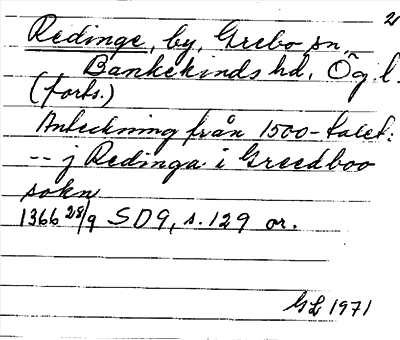 2
Redinge, by, Grebo sn,
Bankekinds hd, Ög. l.
(forts.)
Anteckning från 1500-talet:
-- j Redinga i Greedboo
sokn
1366 28/9 SD9, s. 129 or.
GL 1971